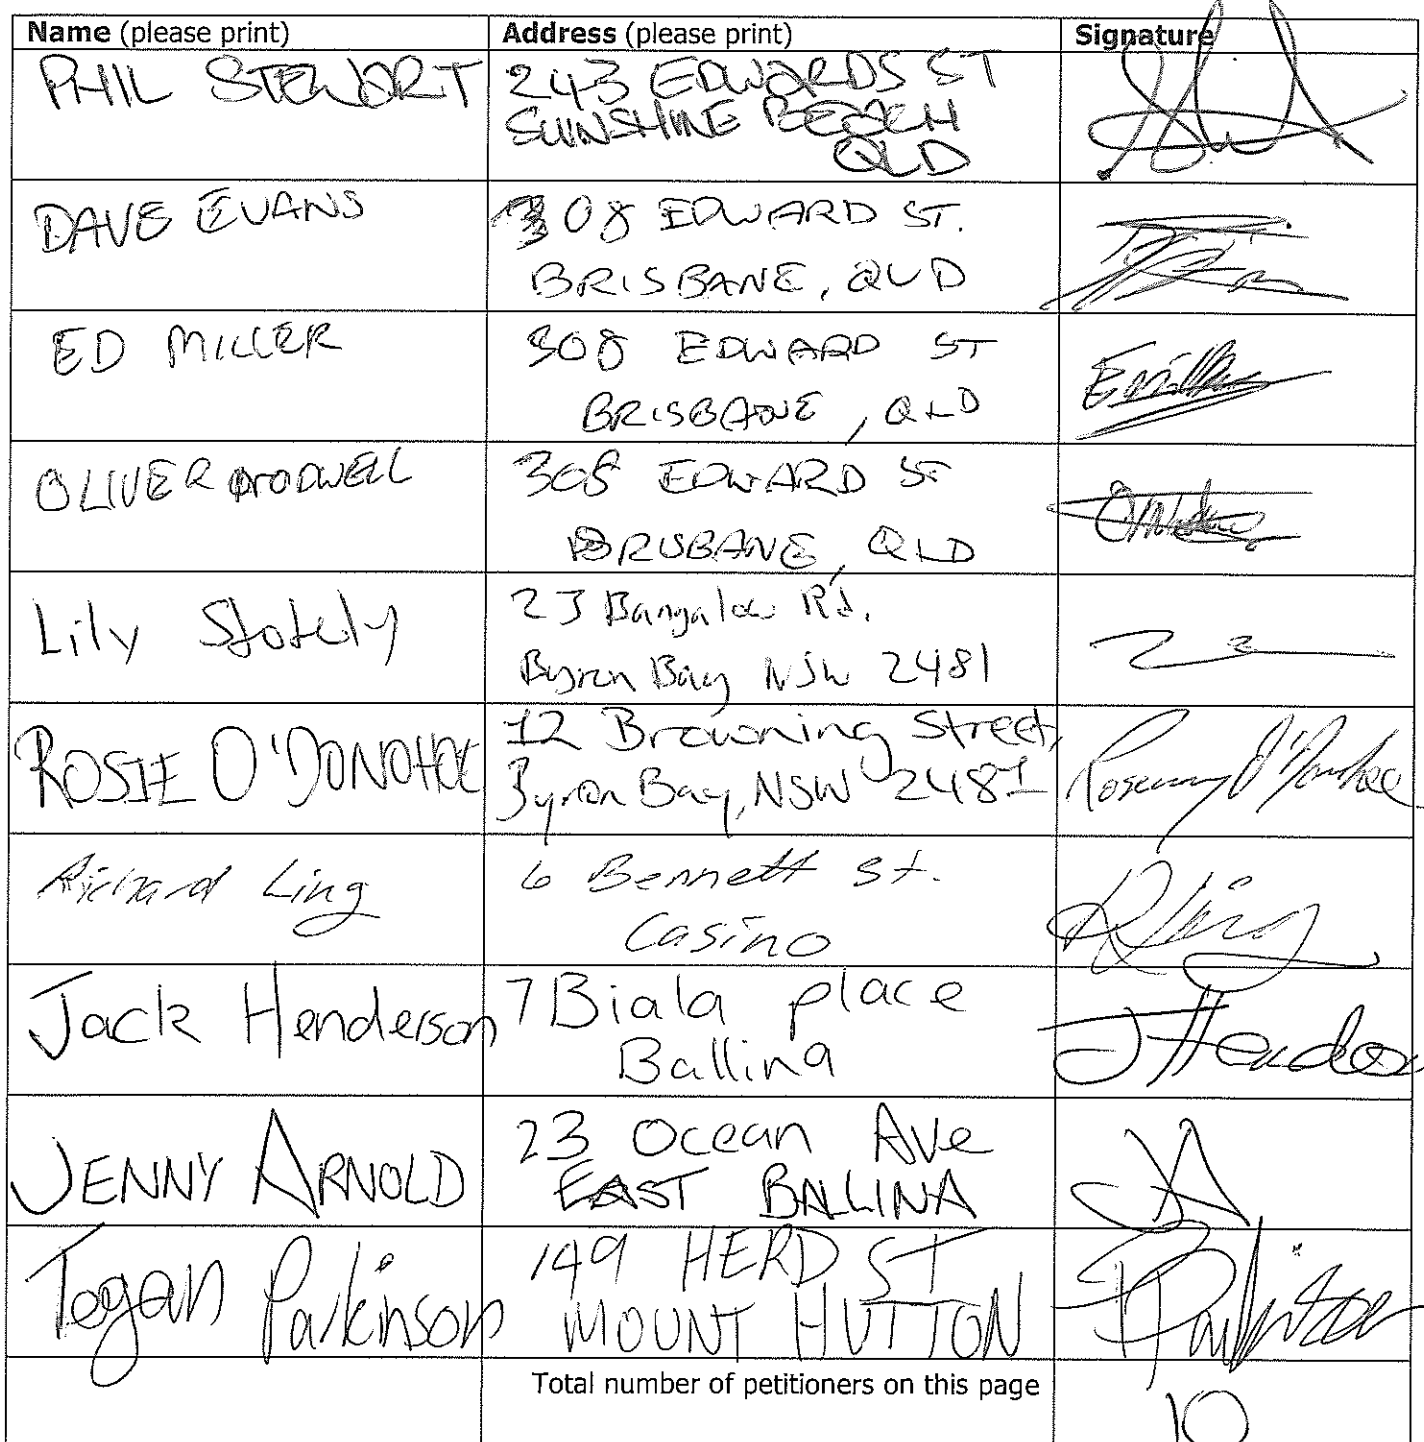 Name (please print) Address (please print) Signature
PHIL STEWART 243 EDWARDS ST
SUNSHINE BEACH
QLD
DAVE EVANS 308 EDWARD ST.
BRISBANE, QLD
ED MILLER 308 EDWARD ST
BRISBANE, QLD
OLIVER 308 EDWARD ST
BRISBANE, QLD
Lily 23 Bangalow Rd.
Byron Bay NSW 2481
ROSIE O'DONOHOE 12 Browning Street, Rosemary O'Donohoe
Byron Bay, NSW 2481
Richard Ling 6 Bennett St. RLing
Casino
Jack Henderson 7 Biala place
Ballina
JENNY ARNOLD 23 Ocean Ave JA
EAST BALLINA
Tegan Parkinson 149 HERD ST
MOUNT HUTTON
Total number of petitioners on this page
10